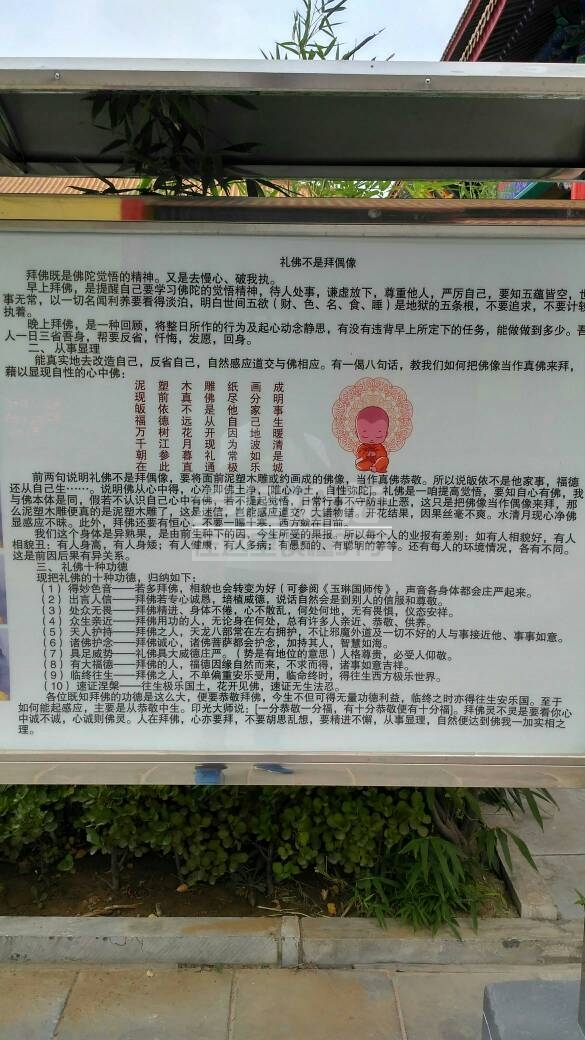 礼佛不是拜偶像
拜佛既是佛陀觉悟的精神。又是去慢心、破我执。
早上拜佛，是提醒自己要学习佛陀的觉悟精神，待人处事，谦虚放下，尊重他人，严厉自己，要知五蕴皆空，世
事无常，以一切名闻利养要看得淡泊，明白世间五欲（财、色、名、食、睡）是地狱的五条根，不要追求，不要计较
执着。
晚上拜佛，是一种回顾，将整日所作的行为及起心动念静思，有没有违背早上所定下的任务，能做做到多少。吾
人一日三省吾身，帮要反省，忏悔，发愿，回身。
二、 从事显理
能真实地去改造自己，反省自己，自然感应道交与佛相应。有一偈八句话，教我们如何把佛像当作真佛来拜，
藉以显现自性的心中佛：
泥塑木雕纸画成
现前真佛尽分明
皈依不是他家事
福德远从自己生
万树花开因地暖
千江月现为波清
朝参暮礼常如是
在此直通极乐城
前两句说明礼佛不是拜偶像，要将面前泥塑木雕或约画成的佛像，当作真佛恭敬。所以说皈依不是他家事，福德
还从自己生……。说明佛从心中得，心净即佛土净，[唯心净土，自性弥陀]。礼佛是一咱提高觉悟，要知自心有佛，我
与佛本体是同，假若不认识自己心中有佛，若不提起觉悟，日常行事不守防非止恶，这只是把佛像当作偶像来拜，那
么泥塑木雕便真的是泥塑木雕了，这是迷信，岂能感应道交？大错特错。开花结果，因果丝毫不爽。水清月现心净佛
显感应不昧。此外，拜佛还要有恒心，不要一曝十寒，西方就在目前。
我们这个身体是异熟果，是由前生种下的因，今生所受的果报。所以每个人的业报有差别：如有人相貌好，有人
相貌丑；有人身高，有人身矮；有人健康，有人多病；有愚痴的、有聪明的等等。还有每人的环境情况，各有不同。
这是前因后果有异关系。
三、 礼佛十种功德
现把礼佛的十种功德，归纳如下：
（1）得妙色音——若多拜佛，相貌也会转变为好（可参阅《玉琳国师传》，声音各身体都会庄严起来。
（2）出言人信——拜佛若专心诚恳，培植威德，说话自然会是到别人的信服和尊敬。
（3）处众无畏——拜佛精进、身体不倦，心不散乱，何处何地，无有畏惧，仪态安祥。
（4）众生亲近——拜佛用功的人，无论身在何处，总有许多人亲近、恭敬、供养。
（5）天人护持——拜佛之人，天龙八部常在左右拥护，不让邪魔外道及一切不好的人与事接近他、事事如意。
（6）诸佛护念——拜佛诚心，诸佛菩萨都会护念，加持其人，智慧如海。
（7）具足威势——礼佛具大威德庄严（势是有地位的意思）人格尊贵，必受人仰敬。
（8）有大福德——拜佛的人，福德因缘自然而来，不求而得，诸事如意吉祥。
（9）临终往生——拜佛之人，不单偏重安乐受用，临命终时，得往生西方极乐世界。
（10）速证涅槃——往生极乐国土，花开见佛，速证无生法忍。
各位既知拜佛的功德是这么大，便要恭敬拜佛，今生不但可得无量功德利益，临终之时亦得往生安乐国。至于
如何能起感应，主要是从恭敬中生。印光大师说：[一分恭敬一分福，有十分恭敬便有十分福]。拜佛灵不灵是要看你心
中诚不诚，心诚则佛灵。人在拜佛，心亦要拜，不要胡思乱想，要精进不懈，从事显理，自然便达到佛我一加实相之
理。